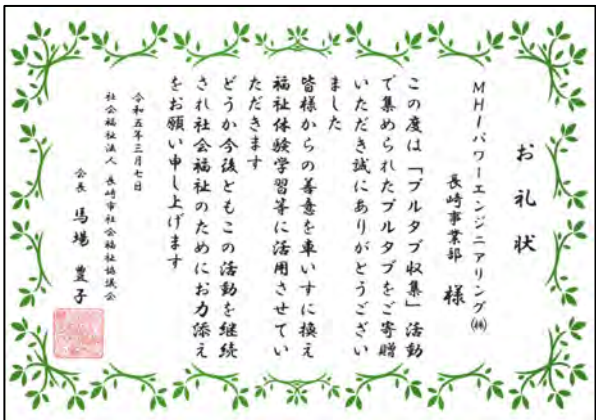 お礼状
MHIパワーエンジニアリング㈱
長崎事業部 様
この度は「プルタブ収集」活動
で集められたプルタブをご寄贈
いただき誠にありがとうござい
ました
皆様からの善意を車いすに換え
福祉体験学習等に活用させてい
ただきます
どうか今後ともこの活動を継続
され社会福祉のためにお力添え
をお願い申し上げます
令和五年三月七日
社会福祉法人 長崎市社会福祉協議会
会長 馬場 豊子